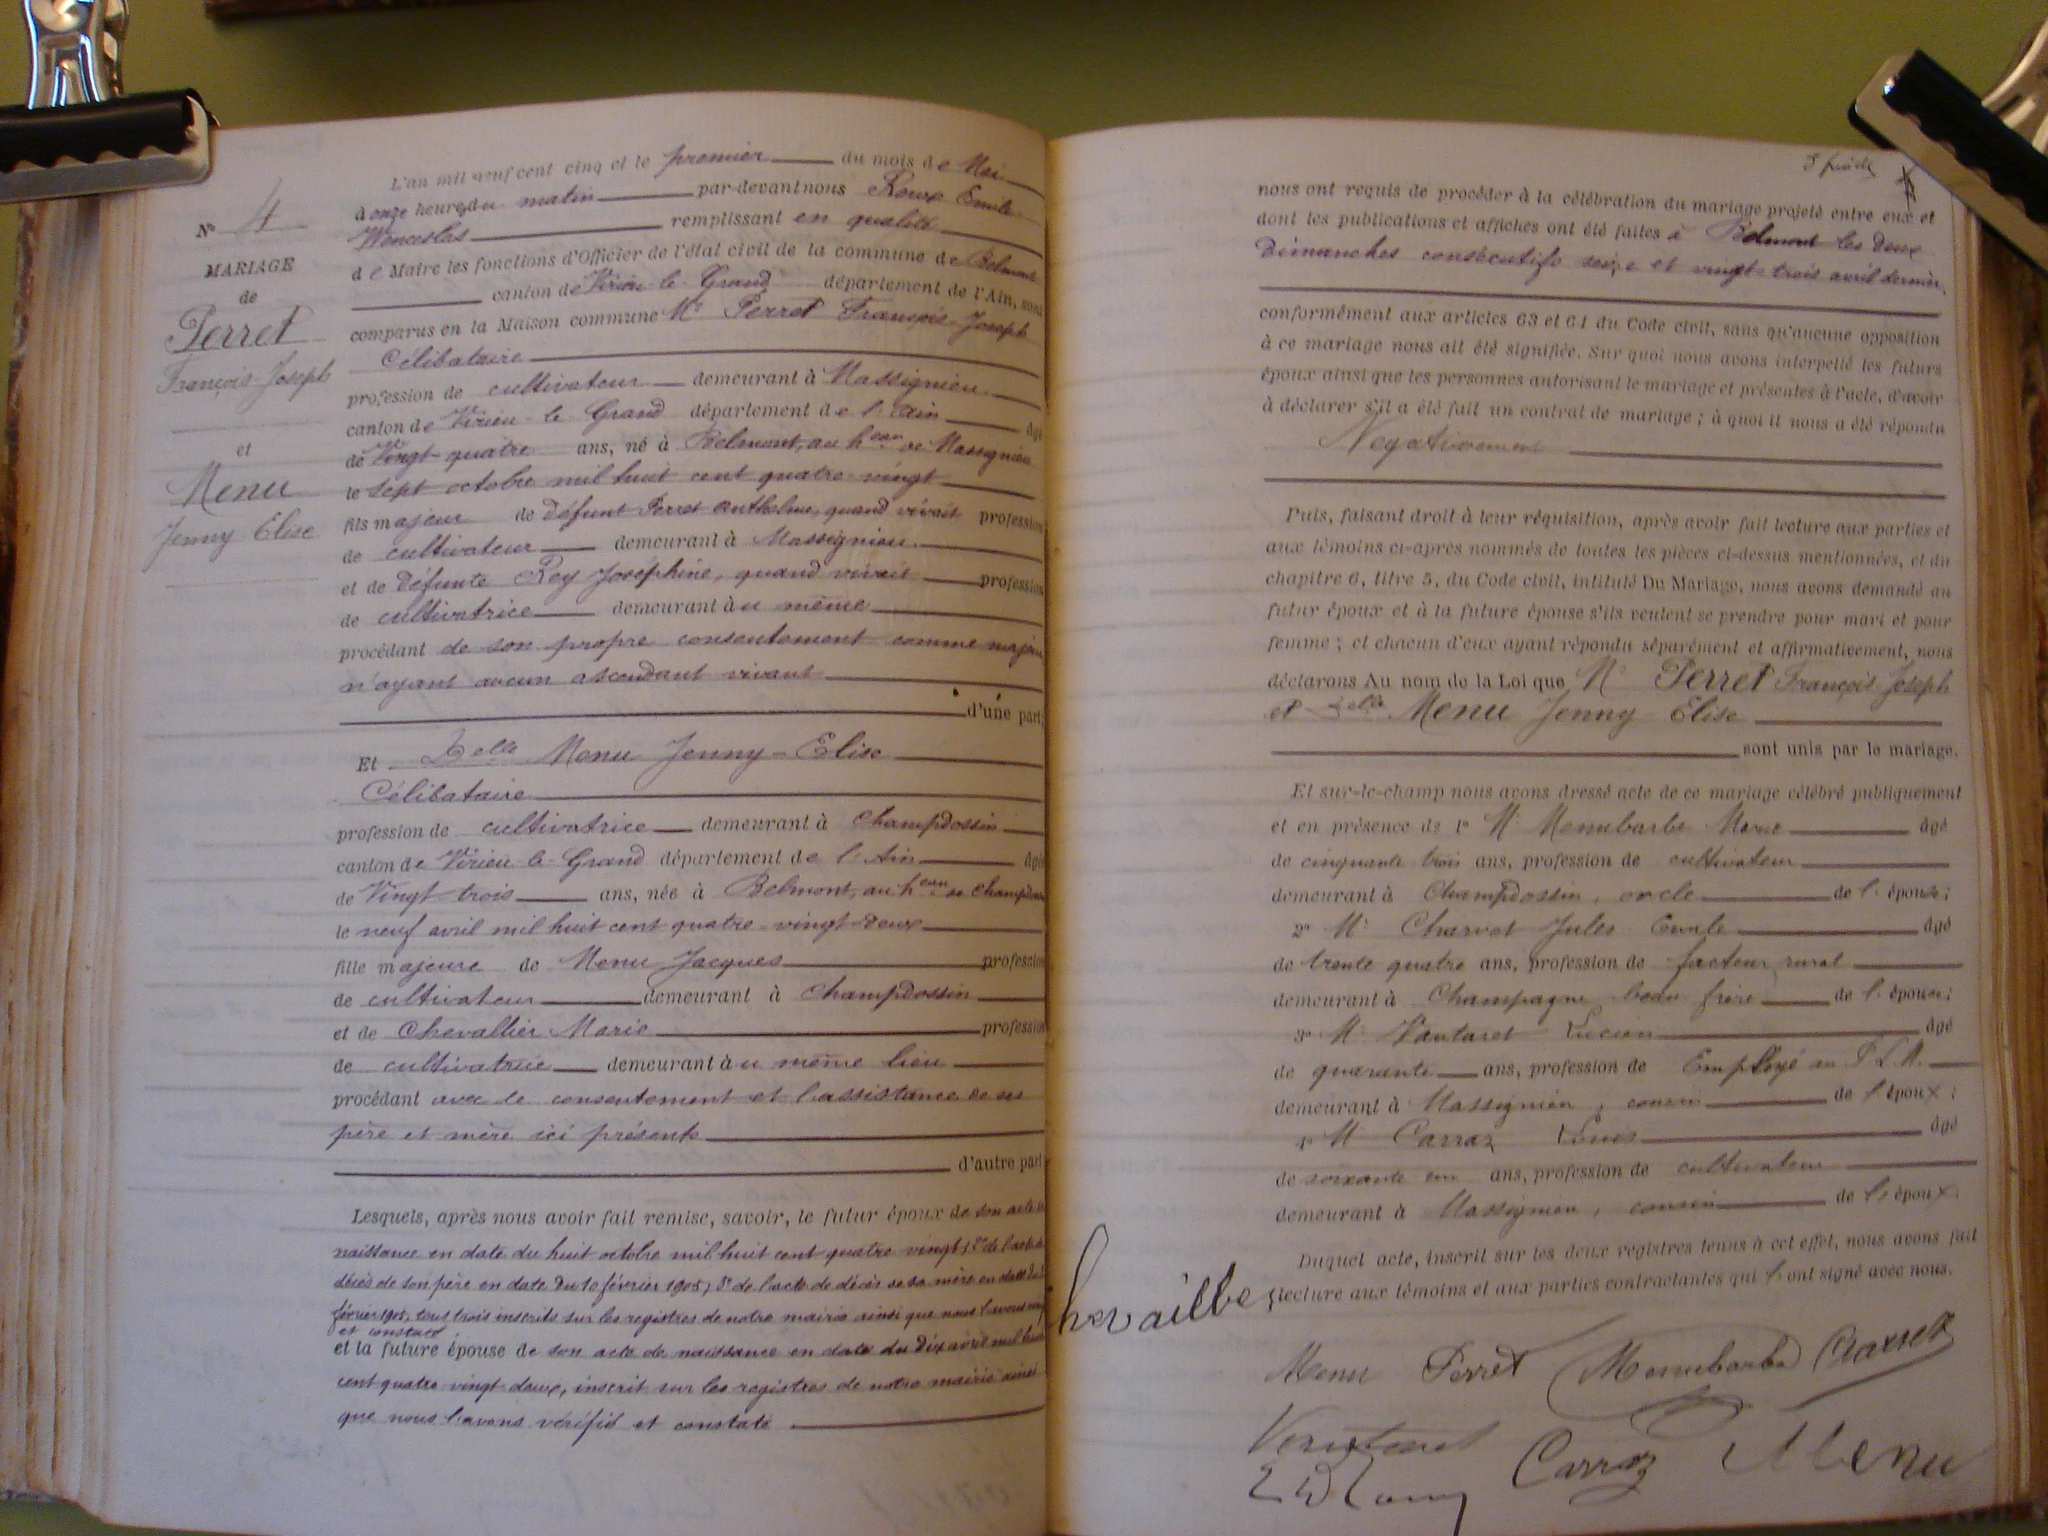 N° 4
MARIAGE
de
Perret
François-Joseph
et
Menu
Jenny Elise
L'an mil neuf cent cinq et le premier du mois de Mai
à onze heures du matin par-devant nous Roux Emile
Wenceslas remplissant en qualité
de Maire les fonctions d'Officier de l'état civil de la commune de Belmont
canton de Virieu-le-Grand département de l'Ain, sont
comparus en la Maison commune Mr Perret François-Joseph
Célibataire
profession de cultivateur demeurant à Massignieu
canton de Virieu-le-Grand département de l'Ain âgé
de Vingt-quatre ans, né à Belmont, au heau de Massignieu
le sept octobre mil huit cent quatre-vingt
fils majeur de défunt Perret Anthelme, quand vivait profession
de cultivateur demeurant à Massignieu
et de défunte Rey Joséphine, quand vivait profession
de cultivatrice demeurant au même
procédant de son propre consentement comme majeur
n'ayant aucun ascendant vivant
d'une part;
Et Delle Menu Jenny-Elise
Célibataire
profession de cultivatrice demeurant à Champdossin
canton de Virieu-le-Grand département de l'Ain âgée
de Vingt-trois ans, née à Belmont, au heau de Champdossin
le neuf avril mil huit cent quatre-vingt-deux
fille majeure de Menu Jacques profession
de cultivateur demeurant à Champdossin
et de Chevallier Marie profession
de cultivatrice demeurant au même lieu
procédant avec le consentement et l'assistance de ses
père et mère ici présents
d'autre part
Lesquels, après nous avoir fait remise, savoir, le futur époux de son acte de
naissance en date du huit octobre mil huit cent quatre vingt; 2° de l'acte de
décès de son père en date du 10 février 1905; 3° de l'acte de décès de sa mère en date du
février 1905, tous trois inscrits sur les registres de notre mairie ainsi que nous l'avons
et constaté
et la future épouse de son acte de naissance en date du dix avril mil huit
cent quatre vingt deux, inscrit sur les registres de notre mairie ainsi
que nous l'avons vérifié et constaté
nous ont requis de procéder à la célébration du mariage projeté entre eux et
dont les publications et affiches ont été faites à Belmont les deux
Dimanches consécutifs seize et vingt-trois avril dernier,
conformément aux articles 63 et 64 du Code civil, sans qu'aucune opposition
à ce mariage nous ait été signifiée. Sur quoi nous avons interpellé les futurs
époux ainsi que les personnes autorisant le mariage et présentes à l'acte, d'avoir
à déclarer s'il a été fait un contrat de mariage; à quoi il nous a été répondu
Négativement
Puis, faisant droit à leur réquisition, après avoir fait lecture aux parties et
aux témoins ci-après nommés de toutes les pièces ci-dessus mentionnées, et du
chapitre 6, titre 5, du Code civil, intitulé Du Mariage, nous avons demandé au
futur époux et à la future épouse s'ils veulent se prendre pour mari et pour
femme; et chacun d'eux ayant répondu séparément et affirmativement, nous
déclarons Au nom de la Loi que Mr Perret François-Joseph
et Delle Menu Jenny Elise
sont unis par le mariage.
Et sur-le-champ nous avons dressé acte de ce mariage célébré publiquement
et en présence de 1° Mr Menubarbe Marie âgé
de cinquante trois ans, profession de cultivateur
demeurant à Champdossin, oncle de l'épouse;
2° Mr Charvet Jules Emile âgé
de trente quatre ans, profession de facteur rural
demeurant à Champagne beau frère de l'épouse;
3° Mr Vantaret Lucien âgé
de quarante ans, profession de Employé au P.L.M.
demeurant à Massignieu, cousin de l'époux;
4° Mr Carraz Louis âgé
de soixante un ans, profession de cultivateur
demeurant à Massignieu, cousin de l'époux.
Duquel acte, inscrit sur les deux registres tenus à cet effet, nous avons fait
lecture aux témoins et aux parties contractantes qui l'ont signé avec nous.
Menu Perret Menubarbe Charvet
Carraz Menu